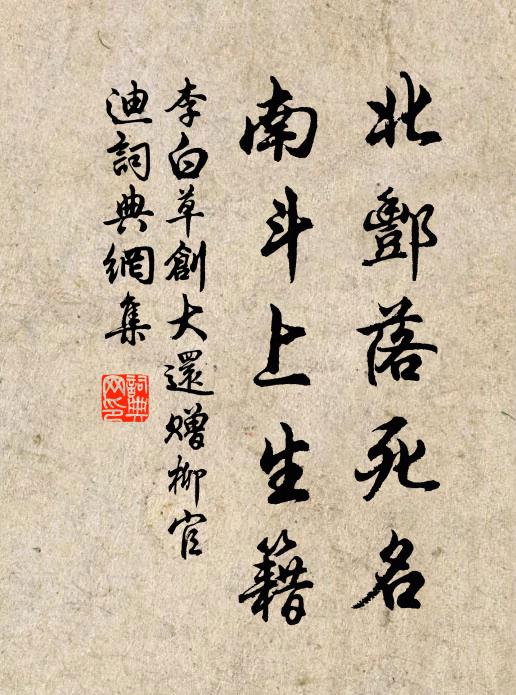 北酆落死名
南斗上生籍
李白草創大還贈柳官
迪詞典網集
詞典网印